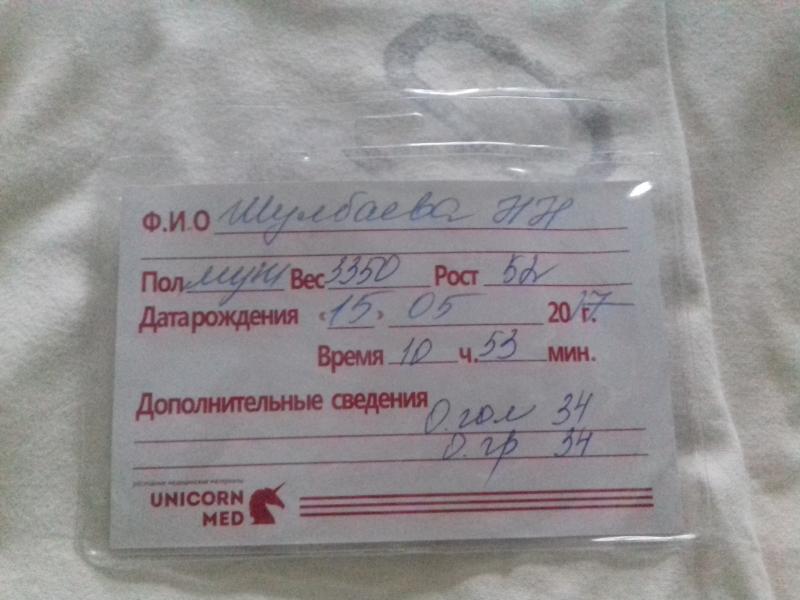 Ф.И.О Шулбаева НН
Пол муж Вес 3350 Рост 52
Дата рождения «15» 05 2017 г.
Время 10 ч. 53 мин.
Дополнительные сведения
О.гол 34
О.гр 34
расходные медицинские материалы
UNICORN
MED